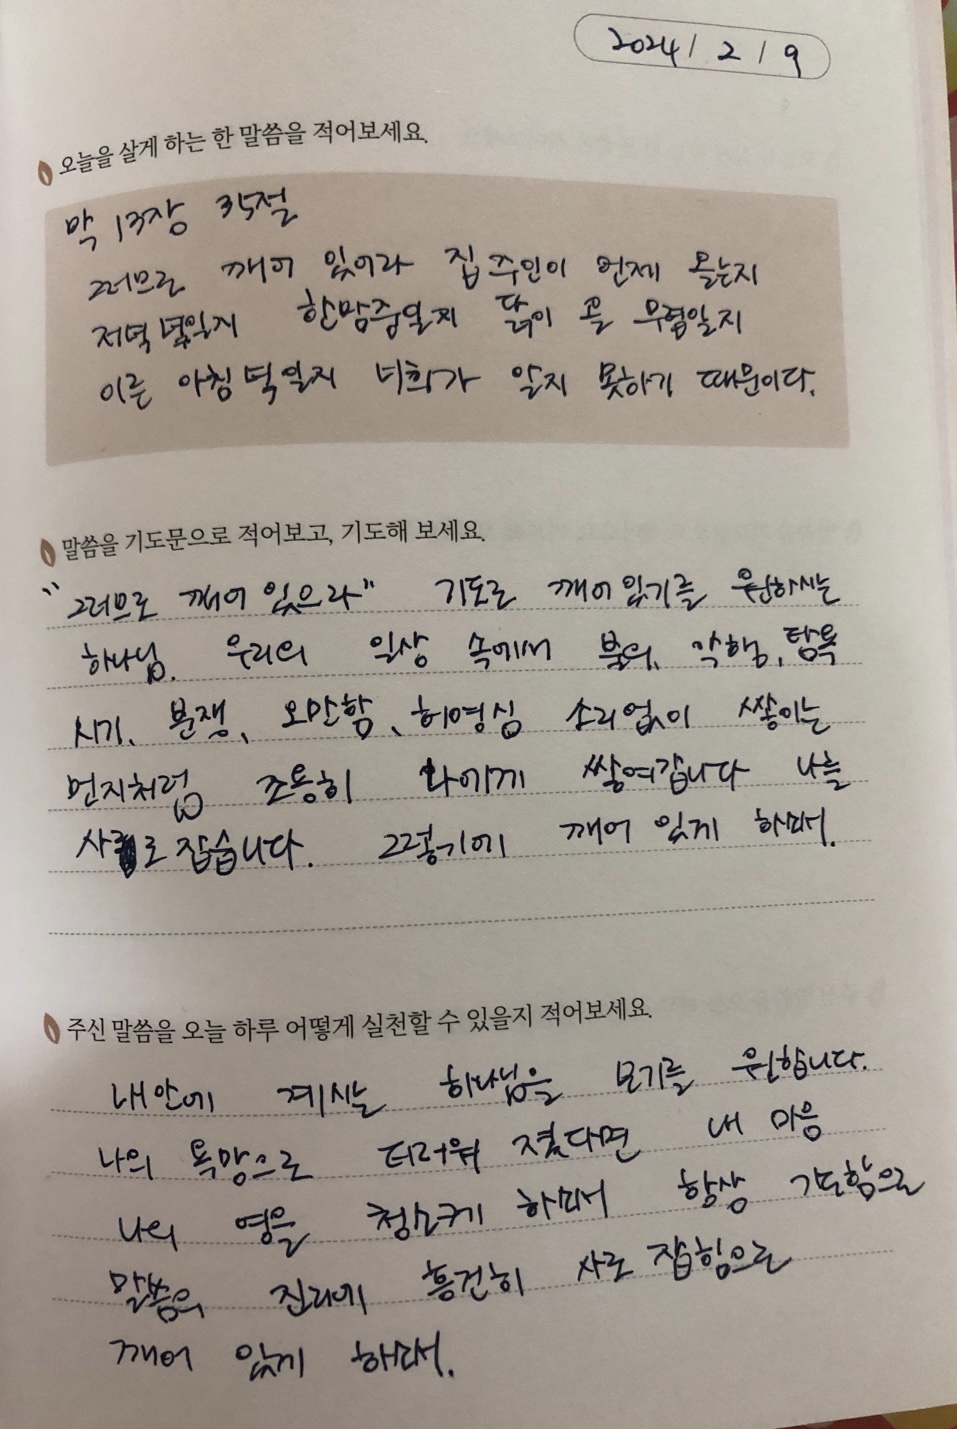 2024 / 2 / 9
오늘을 살게 하는 한 말씀을 적어보세요.
막 13장 35절
그러므로 깨어 있어라 집주인이 언제 올는지
저녁녘일지 한밤중일지 닭이 울 무렵일지
이른 아침 녘일지 너희가 알지 못하기 때문이다.
말씀을 기도문으로 적어보고, 기도해 보세요.
"그러므로 깨어 있으라" 기도로 깨어있기를 원하시는
하나님. 우리의 일상 속에서 불의, 악행, 탐욕
시기, 분쟁, 오만함, 허영심 소리없이 쌓이는
먼지처럼 조용히 나에게 쌓여갑니다 나를
사로잡습니다. 그렇기에 깨어 있게 하소서.
주신 말씀을 오늘 하루 어떻게 실천할 수 있을지 적어보세요.
내안에 계시는 하나님을 보기를 원합니다.
나의 욕망으로 더러워 졌다면 내 마음
나의 영을 청소케 하소서 항상 기도함으로
말씀의 진리에 흥건히 사로 잡힘으로
깨어 있게 하소서.